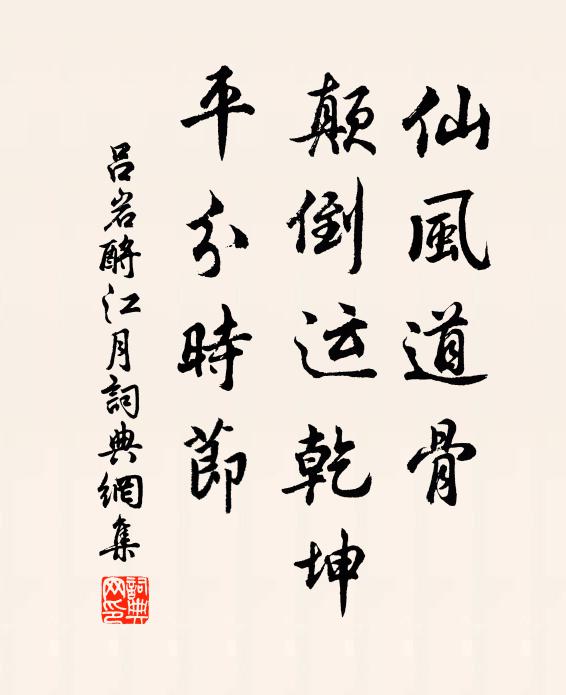 仙風道骨
顛倒运乾坤
平分時節
呂岩酹江月詞典網集
詞典网印